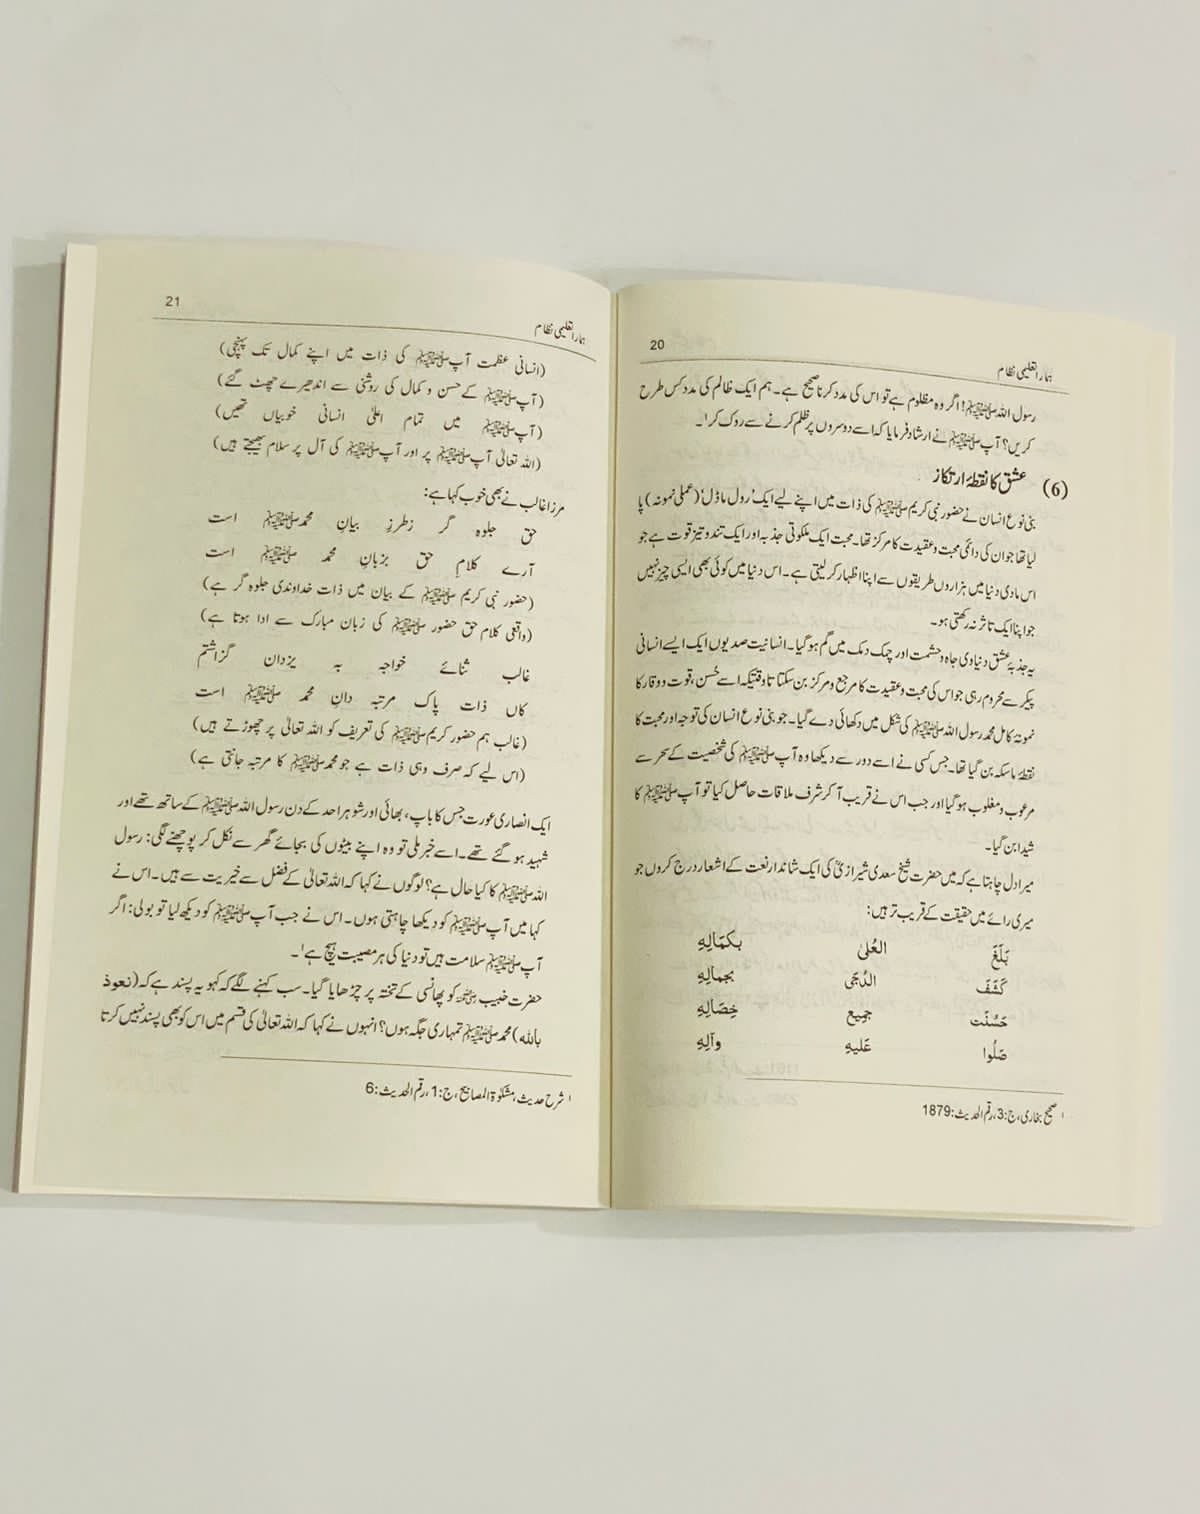 20
ہمارا تعلیمی نظام
رسول اللہ ﷺ! اگر وہ مظلوم ہے تو اس کی مدد کرنا صحیح ہے۔ ہم ایک ظالم کی مدد کس طرح
کریں؟ آپ ﷺ نے ارشاد فرمایا کہ اسے دوسروں پر ظلم کرنے سے روک کر۱۔
(6) عشق کا نقطۂ ارتکاز
بنی نوع انسان نے حضور نبی کریم ﷺ کی ذات میں اپنے لیے ایک 'رول ماڈل' (عملی نمونہ) پا
لیا تھا جو ان کی دائمی محبت و عقیدت کا مرکز تھا۔ محبت ایک ملکوتی جذبہ اور ایک تند و تیز قوت ہے جو
اس مادی دنیا میں ہزاروں طریقوں سے اپنا اظہار کر لیتی ہے۔ اس دنیا میں کوئی بھی ایسی چیز نہیں
جو اپنا ایک تاثر نہ رکھتی ہو۔
یہ جذبۂ عشق دنیاوی جاہ و حشمت اور چمک دمک میں گم ہو گیا۔ انسانیت صدیوں ایک ایسے انسانی
پیکر سے محروم رہی جو اس کی محبت و عقیدت کا مرجع و مرکز بن سکتا تاوقتیکہ اسے حُسن، قوت و وقار کا
نمونۂ کامل محمد رسول اللہ ﷺ کی شکل میں دکھائی دے گیا۔ جو بنی نوع انسان کی توجہ اور محبت کا
نقطۂ ماسکہ بن گیا تھا۔ جس کسی نے اسے دور سے دیکھا وہ آپ ﷺ کی شخصیت کے سحر سے
مرعوب و مغلوب ہو گیا اور جب اس نے قریب آ کر شرف ملاقات حاصل کیا تو آپ ﷺ کا
شیدا بن گیا۔
میرا دل چاہتا ہے کہ میں حضرت شیخ سعدی شیرازیؒ کی ایک شاندار نعت کے اشعار درج کروں جو
میری رائے میں حقیقت کے قریب تر ہیں:
بَلَغَ العُلیٰ بِکمَالِهِ
کَشَفَ الدُجیٰ بجمالِهِ
حَسُنَت جَمِیع خِصَالِهِ
صَلُوا عَلَیهِ وآلِهِ
۱ صحیح بخاری، ج:3، رقم الحدیث:1879
21
ہمارا تعلیمی نظام
(انسانی عظمت آپ ﷺ کی ذات میں اپنے کمال تک پہنچی)
(آپ ﷺ کے حسن و کمال کی روشنی سے اندھیرے چھٹ گئے)
(آپ ﷺ میں تمام اعلیٰ انسانی خوبیاں تھیں)
(اللہ تعالیٰ آپ ﷺ پر اور آپ ﷺ کی آل پر سلام بھیجتے ہیں)
مرزا غالب نے بھی خوب کہا ہے:
حق جلوہ گر زطرزِ بیانِ محمد ﷺ است
آرے کلامِ حق بزبانِ محمد ﷺ است
(حضور نبی کریم ﷺ کے بیان میں ذات خداوندی جلوہ گر ہے)
(واقعی کلام حق حضور ﷺ کی زبان مبارک سے ادا ہوتا ہے)
غالب ثنائے خواجہ بہ یزدان گزاشتم
کاں ذات پاک مرتبہ دانِ محمد ﷺ است
(غالب ہم حضور کریم ﷺ کی تعریف کو اللہ تعالیٰ پر چھوڑتے ہیں)
(اس لیے کہ صرف وہی ذات ہے جو محمد ﷺ کا مرتبہ جانتی ہے)
ایک انصاری عورت جس کا باپ، بھائی اور شوہر احد کے دن رسول اللہ ﷺ کے ساتھ تھے اور
شہید ہو گئے تھے۔ اسے خبر ملی تو وہ اپنے بیٹوں کی بجائے گھر سے نکل کر پوچھنے لگی: رسول
اللہ ﷺ کا کیا حال ہے؟ لوگوں نے کہا کہ اللہ تعالیٰ کے فضل سے خیریت سے ہیں۔ اس نے
کہا میں آپ ﷺ کو دیکھا چاہتی ہوں۔ اس نے جب آپ ﷺ کو دیکھ لیا تو بولی: اگر
آپ ﷺ سلامت ہیں تو دنیا کی ہر مصیبت ہیچ ہے۱۔
حضرت خبیب رضی اللہ عنہ کو پھانسی کے تختہ پر چڑھایا گیا۔ سب کہنے لگے کہ کہو یہ پسند ہے کہ (نعوذ
باللہ) محمد ﷺ تمہاری جگہ ہوں؟ انہوں نے کہا کہ اللہ تعالیٰ کی قسم میں اس کو بھی پسند نہیں کرتا
۱ شرح حدیث، مشکوٰۃ المصابیح، ج:1، رقم الحدیث:6